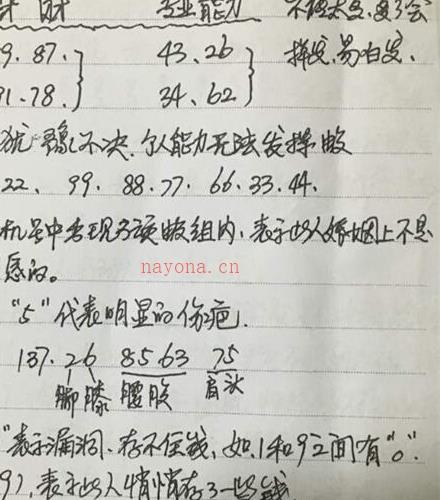 财 专业能力 不
9.87. 43.26 易白发.
91.78. 34.62
犹豫不决.个人能力无法发挥的
22、99.88.77.66.33.44.
机号中出现3项的组内.表示此人婚姻上不忠
nayona.cn
"5"代表明显的伤疤.
137.26 8563 75
脚膝 腰股 肩头
"表示漏洞.存不住钱,如.1和9之间有"0".
9),表示此人悄悄存了一些钱